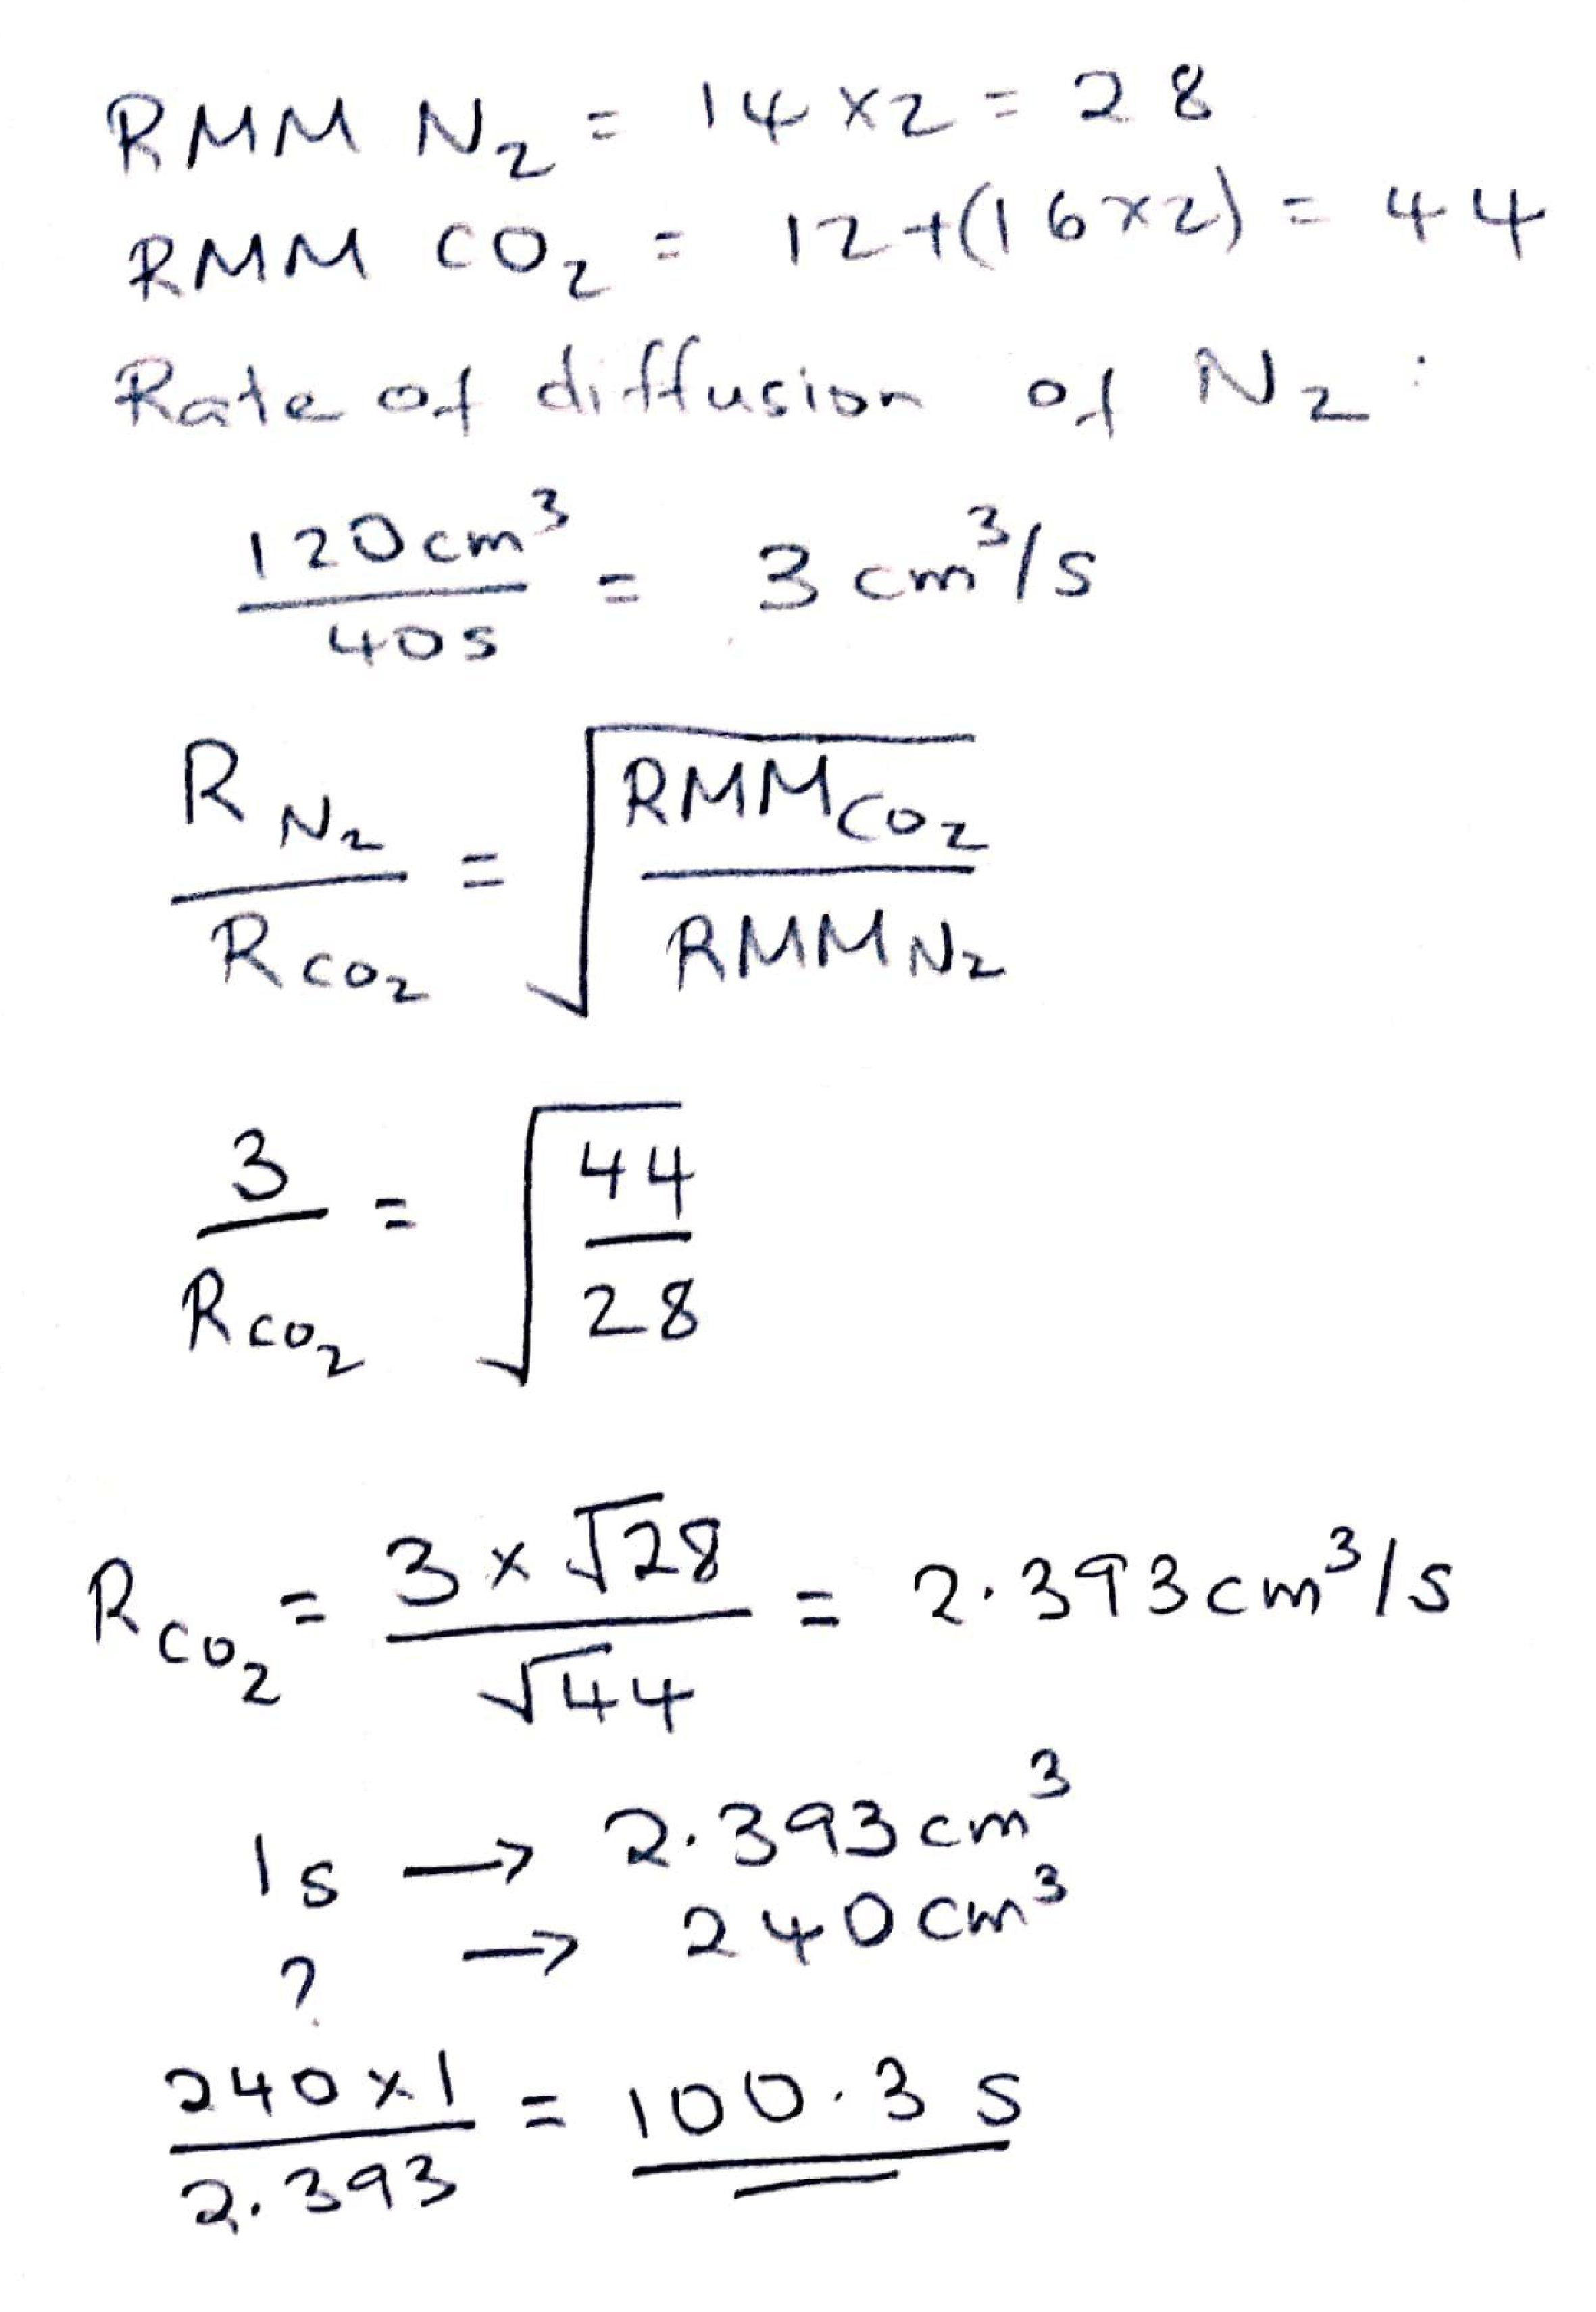 RMM N₂ = 14 x 2 = 28
RMM CO₂ = 12 + (16 x 2) = 44
Rate of diffusion of N₂ :
120 cm³ / 40 s = 3 cm³/s
R N₂ / R CO₂ = √(RMM CO₂ / RMM N₂)
3 / R CO₂ = √(44 / 28)
R CO₂ = 3 x √28 / √44 = 2.393 cm³/s
1 s → 2.393 cm³
? → 240 cm³
240 x 1 / 2.393 = 100.3 s